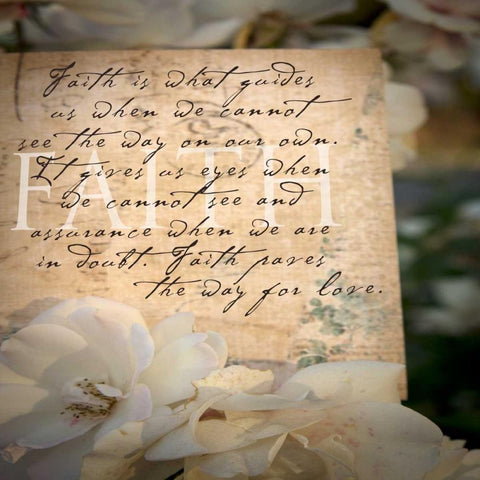 Faith is what guides
us when we cannot
see the way on our own.
FAITH
It gives us eyes when
we cannot see and
assurance when we are
in doubt. Faith paves
the way for love.